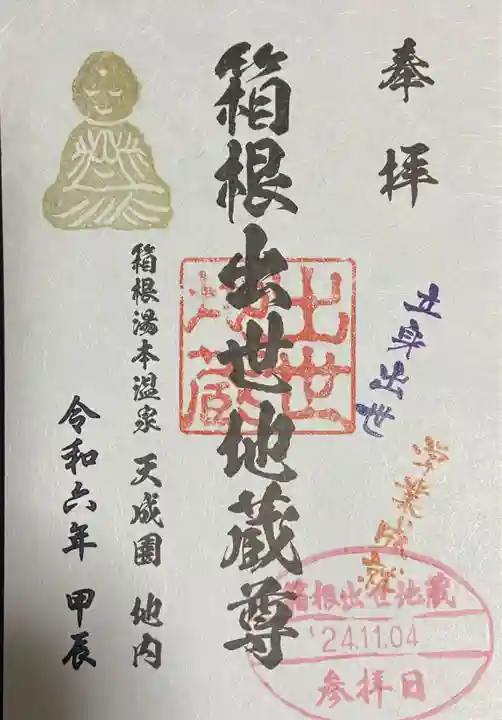 奉拝
箱根出世地蔵尊
出世
地蔵
立身出世
学業成就
箱根湯本温泉 天成園 地内
令和六年 甲辰
箱根出世地蔵
'24.11.04
参拝日